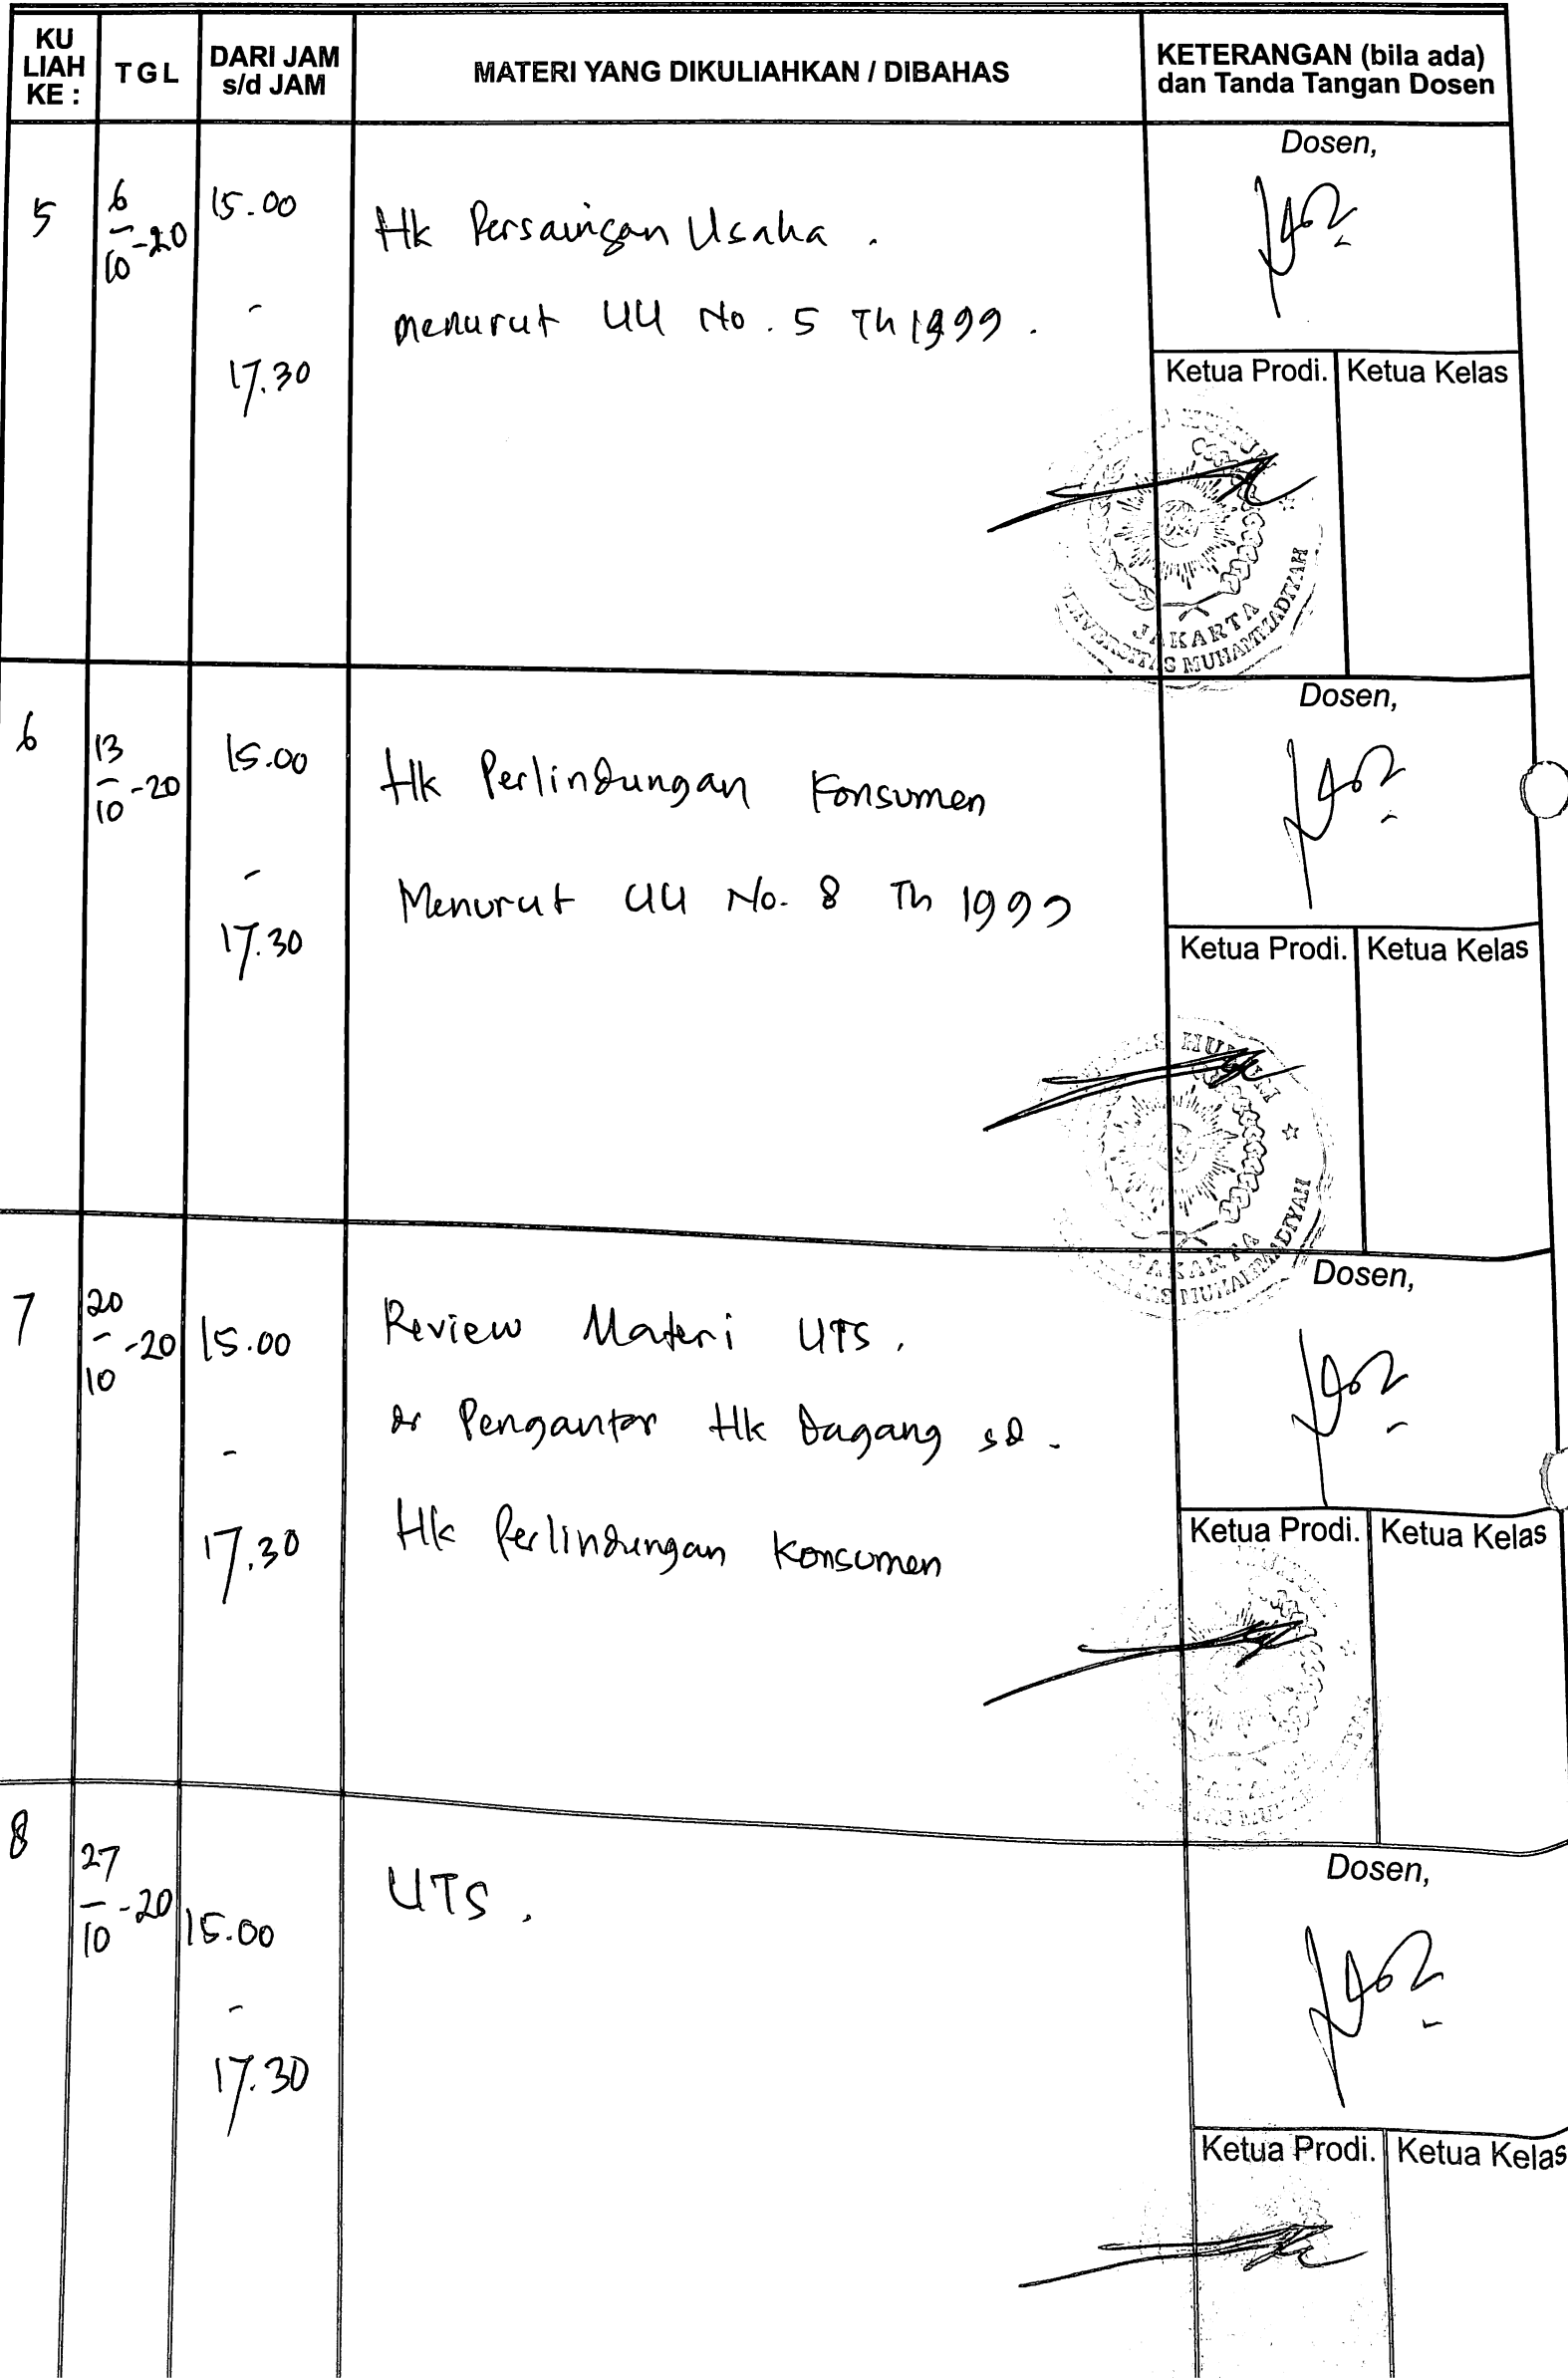 KU
LIAH
KE :
TGL
DARI JAM
s/d JAM
MATERI YANG DIKULIAHKAN / DIBAHAS
KETERANGAN (bila ada)
dan Tanda Tangan Dosen
5
6
10 -20
15.00
-
17.30
Hk Persaingan Usaha .
menurut UU No. 5 Th 1999 .
Dosen,
Ketua Prodi. Ketua Kelas
JAKARTA
UNIVERSITAS MUHAMMADIYAH
6
13
10 -20
15.00
-
17.30
Hk Perlindungan Konsumen
Menurut UU No. 8 Th 1999
Dosen,
Ketua Prodi. Ketua Kelas
HUKUM
JAKARTA
MUHAMMADIYAH
7
20
10 -20
15.00
-
17.30
Review Materi UTS .
dr Pengantar Hk Dagang sd .
Hk Perlindungan Konsumen
Dosen,
Ketua Prodi. Ketua Kelas
8
27
10 -20
15.00
-
17.30
UTS .
Dosen,
Ketua Prodi. Ketua Kelas